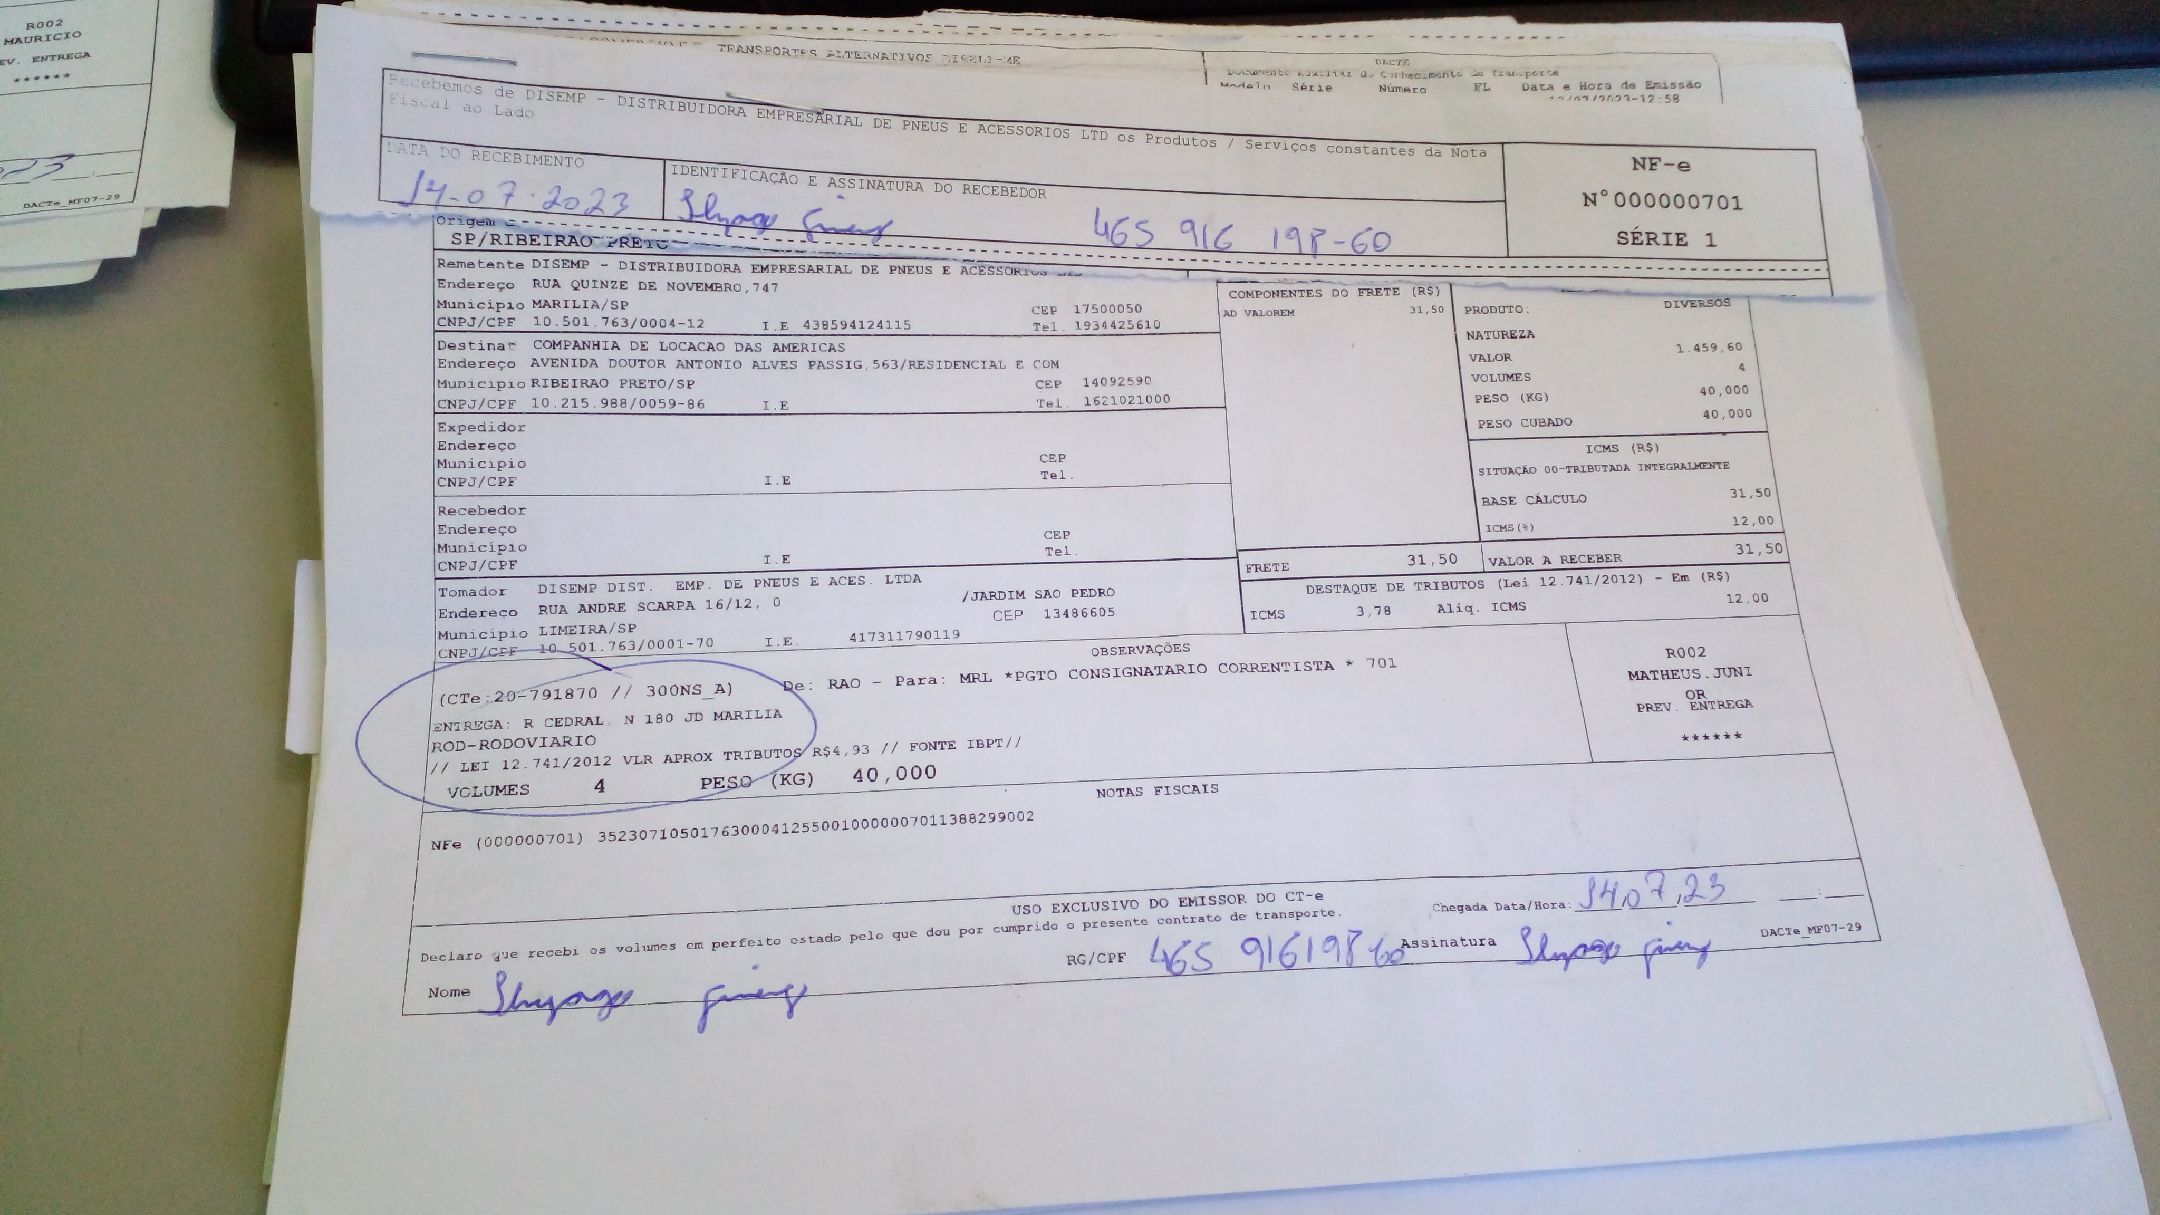 R002
MAURICIO
EV. ENTREGA
******
23
DACTe_MF07-29
TRANSPORTES ALTERNATIVOS
DACTE
Documento Auxiliar do Conhecimento de Transporte
Modelo Série Número FL Data e Hora de Emissão
-12:58
Recebemos de DISEMP - DISTRIBUIDORA EMPRESARIAL DE PNEUS E ACESSORIOS LTD os Produtos / Serviços constantes da Nota
Fiscal ao Lado
DATA DO RECEBIMENTO
14-07-2023
IDENTIFICAÇÃO E ASSINATURA DO RECEBEDOR
465 916 198-60
NF-e
N°000000701
SÉRIE 1
Origem
SP/RIBEIRAO PRETO
Remetente DISEMP - DISTRIBUIDORA EMPRESARIAL DE PNEUS E ACESSORIOS
Endereço RUA QUINZE DE NOVEMBRO,747
Município MARILIA/SP CEP 17500050
CNPJ/CPF 10.501.763/0004-12 I.E 438594124115 Tel. 1934425610
Destinat COMPANHIA DE LOCACAO DAS AMERICAS
Endereço AVENIDA DOUTOR ANTONIO ALVES PASSIG,563/RESIDENCIAL E COM
Município RIBEIRAO PRETO/SP CEP 14092590
CNPJ/CPF 10.215.988/0059-86 I.E Tel. 1621021000
Expedidor
Endereço
Município CEP
CNPJ/CPF I.E Tel.
Recebedor
Endereço
Município CEP
CNPJ/CPF I.E Tel.
Tomador DISEMP DIST. EMP. DE PNEUS E ACES. LTDA
Endereço RUA ANDRE SCARPA 16/12, 0 /JARDIM SAO PEDRO
Município LIMEIRA/SP CEP 13486605
CNPJ/CPF 10.501.763/0001-70 I.E. 417311790119
COMPONENTES DO FRETE (R$)
AD VALOREM 31,50
PRODUTO: DIVERSOS
NATUREZA
VALOR 1.459,60
VOLUMES 4
PESO (KG) 40,000
PESO CUBADO 40,000
ICMS (R$)
SITUAÇÃO 00-TRIBUTADA INTEGRALMENTE
BASE CÁLCULO 31,50
ICMS(%) 12,00
FRETE 31,50 VALOR A RECEBER 31,50
DESTAQUE DE TRIBUTOS (Lei 12.741/2012) - Em (R$)
ICMS 3,78 Aliq. ICMS 12,00
OBSERVAÇÕES
(CTe:20-791870 // 300NS_A) De: RAO - Para: MRL *PGTO CONSIGNATARIO CORRENTISTA * 701
ENTREGA: R CEDRAL, N 180 JD MARILIA
ROD-RODOVIARIO
// LEI 12.741/2012 VLR APROX TRIBUTOS R$4,93 // FONTE IBPT//
VOLUMES 4 PESO (KG) 40,000
R002
MATHEUS.JUNI
OR
PREV. ENTREGA
******
NOTAS FISCAIS
NFe (000000701) 35230710501763000412550010000007011388299002
USO EXCLUSIVO DO EMISSOR DO CT-e
Declaro que recebi os volumes em perfeito estado pelo que dou por cumprido o presente contrato de transporte.
Chegada Data/Hora: 14,07,23
Nome
RG/CPF 465 916198 60 Assinatura
DACTe_MF07-29